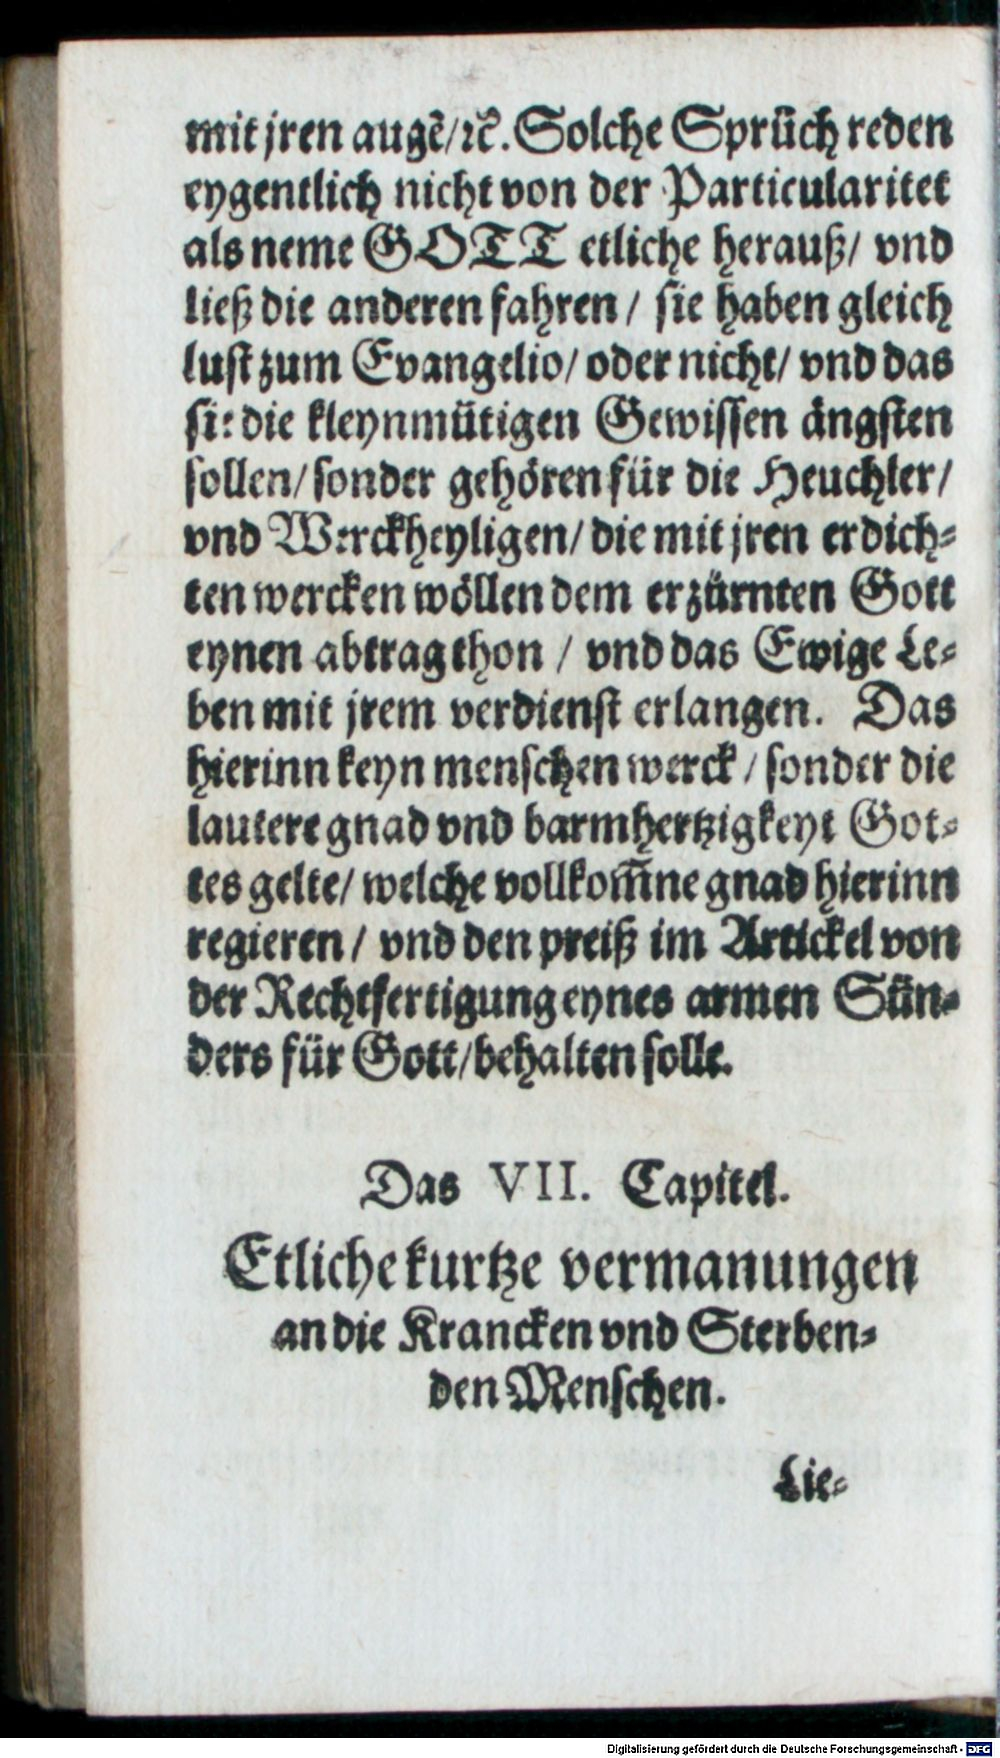 mit jren augẽ/ ꝛc̃. Solche Sprüch reden
eygentlich nicht von der Particularitet
als neme GOTT etliche herauß/ vnd
ließ die anderen fahren / sie haben gleich
lust zum Evangelio/ oder nicht/ vnd das
sie die kleynmütigen Gewissen ängsten
sollen/ sonder gehören für die Heuchler/
vnd Werckheyligen/ die mit jren erdich-
ten wercken wöllen dem erzürnten Gott
eynen abtrag thon / vnd das Ewige Le-
ben mit jrem verdienst erlangen. Das
hierinn keyn menschen werck / sonder die
lautere gnad vnd barmhertzigkeyt Got-
tes gelte/ welche vollkom̃ne gnad hierinn
regieren / vnd den preiß im Artickel von
der Rechtfertigung eynes armen Sün-
ders für Gott/ behalten solle.
Das VII. Capitel.
Etliche kurtze vermanungen
an die Krancken vnd Sterben-
den Menschen.
Lie-
Digitalisierung gefördert durch die Deutsche Forschungsgemeinschaft - DFG